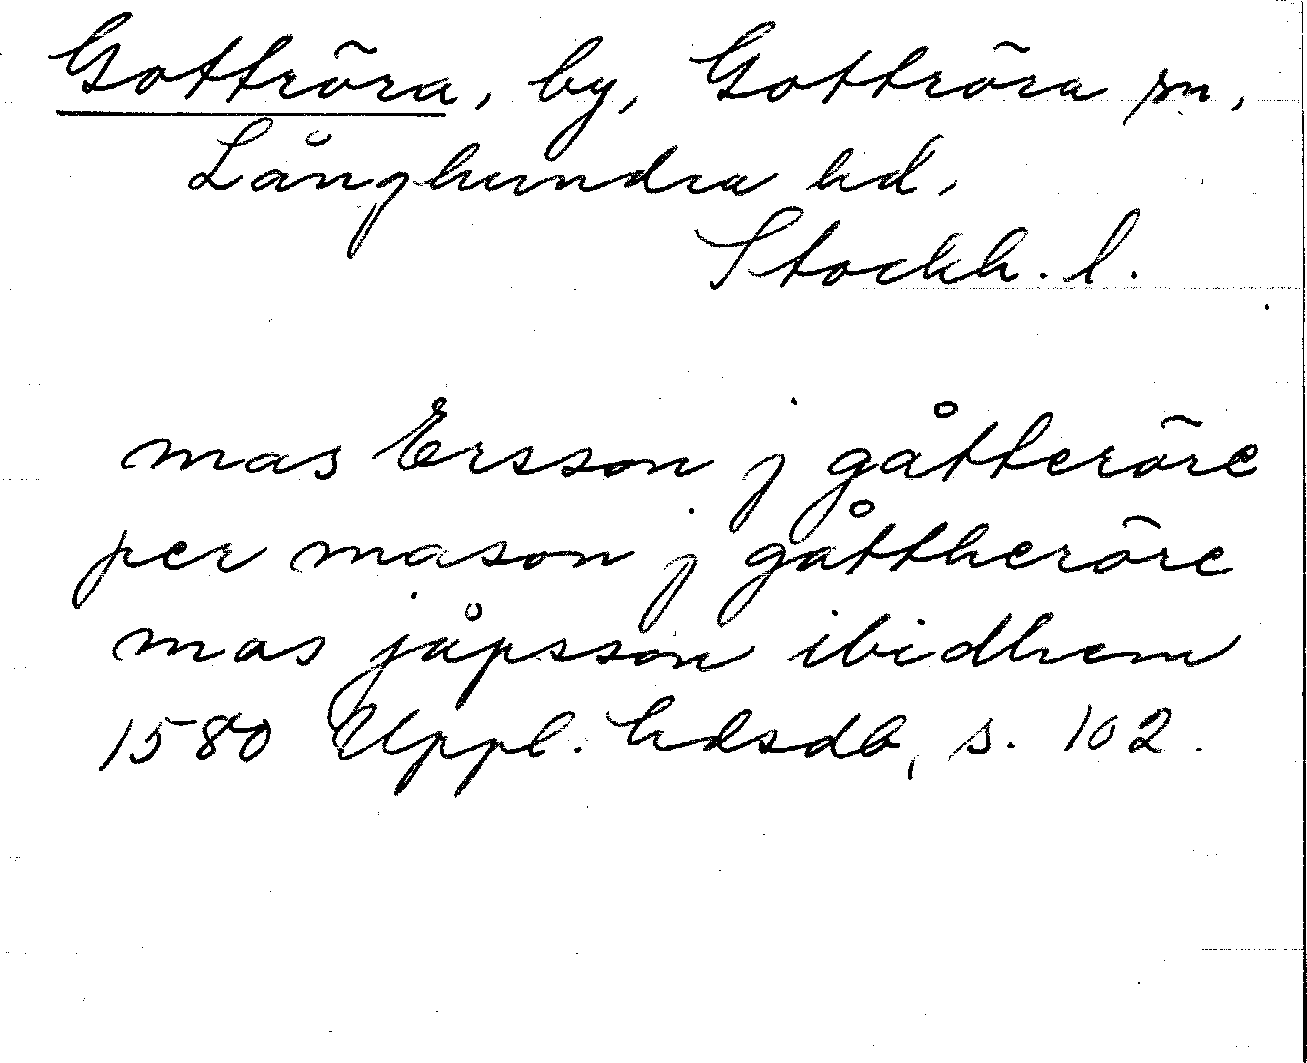 Gottröra, by, Gottröra sn,
Långhundra hd,
Stockh. l.
mas Ersson j gåtteröre
per mason j gåttheröre
mas jåpsson ibidhem
1580 Uppl. hdsdb, s. 102.